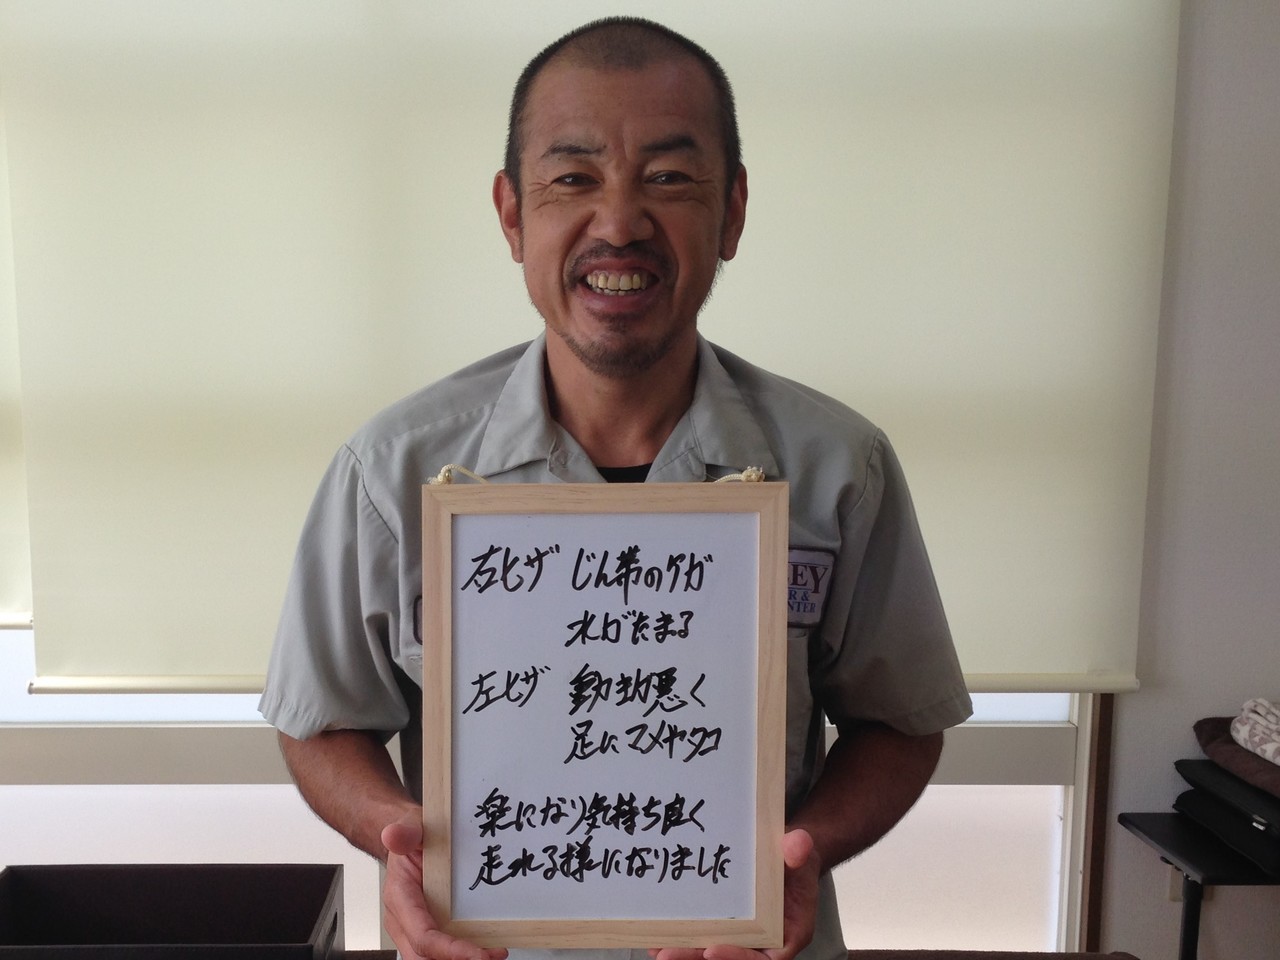 右ヒザ じん帯のケガ
水がたまる
左ヒザ 動き悪く
足にマメやタコ
楽になり気持ち良く
走れる様になりました
EY
R &
NTER